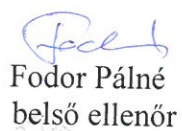 Fodor Pálné
belső ellenőr